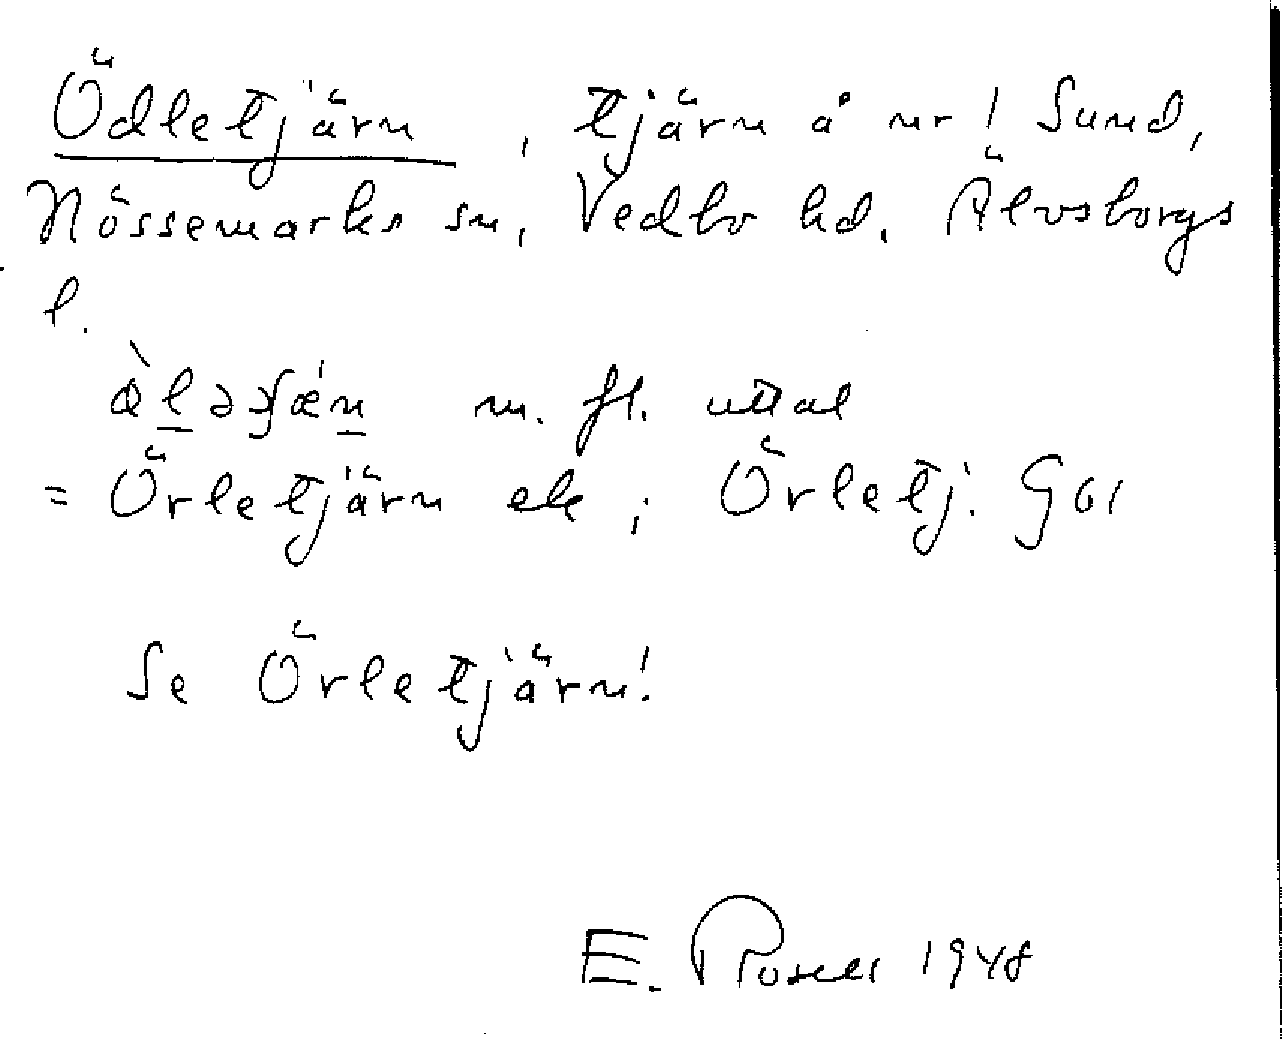 Ödletjärn, tjärn å nr 1 Sund,
Nössemarks sn, Vedbo hd. Älvsborgs
l.
m. fl. uttal
= Örletjärn ek; Örletj. GEK
Se Örletjärn!
E. Rosell 1948